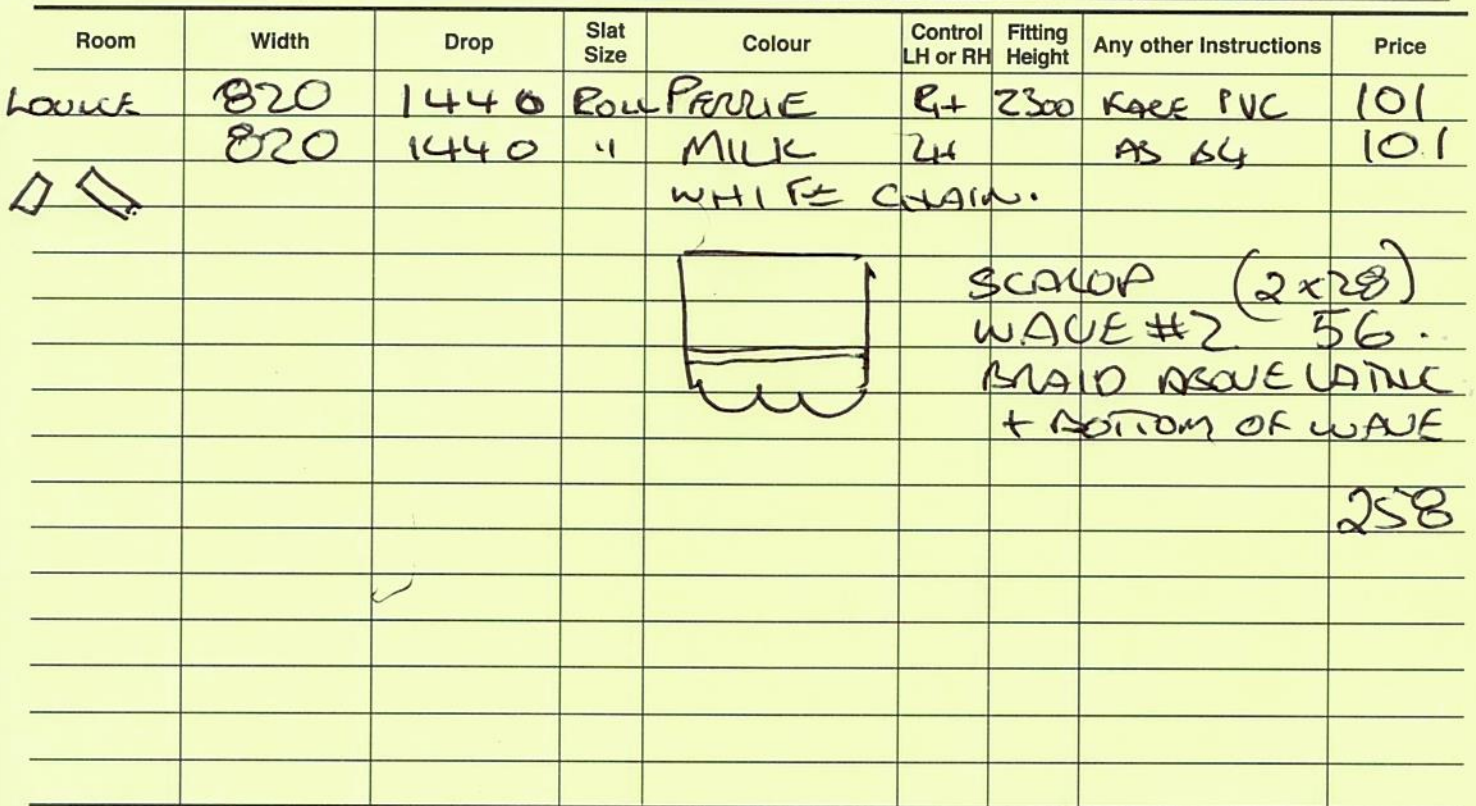 Room Width Drop Slat Size Colour Control LH or RH Fitting Height Any other Instructions Price
LOUNGE 820 1440 ROLL PERRIE RH 2300 FACE PVC 101
820 1440 " MILK LH 101
WHITE CHAIN.
SCALOP (2x28)
WAVE #2 56.
BRAID ABOVE LATHE
+ BOTTOM OF WAVE
258